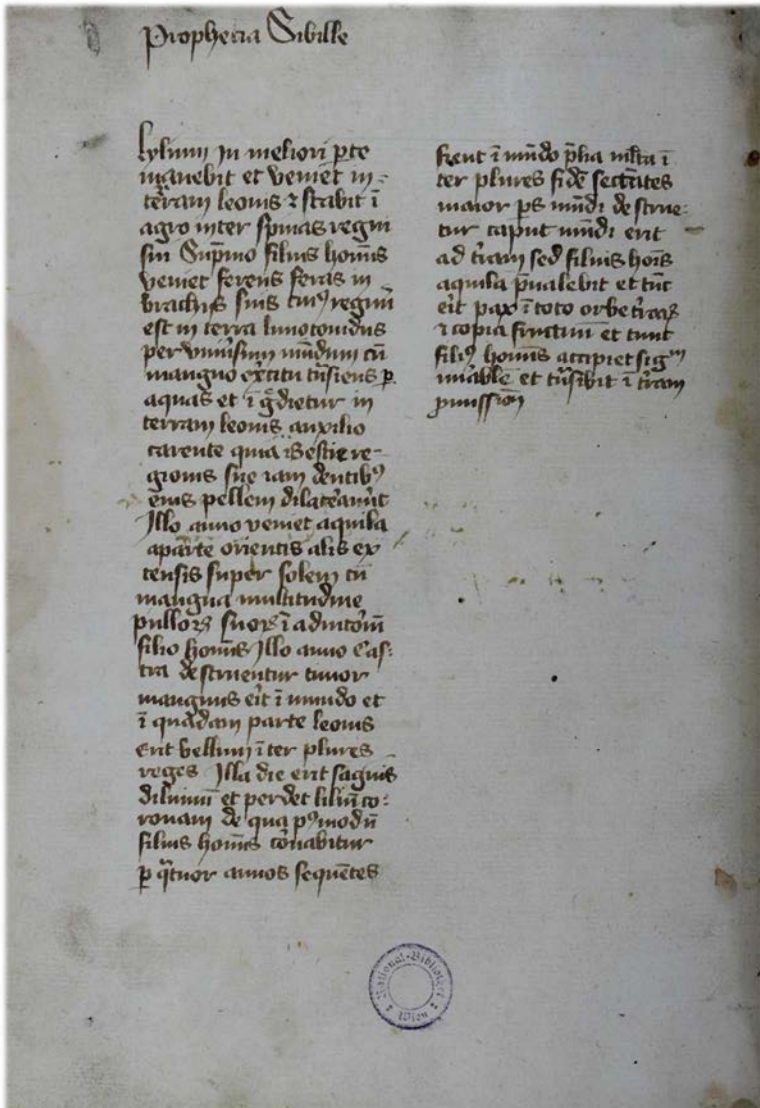 Prophecia Sibille
Lylium in meliori p̱te
manebit et veniet in
terram leonis ⁊ stabit ī
agro inter spinas regni
sui Supͥmo filius homīs
veniet ferens feras in
brachijs suis cuiꝰ regnū
est in terra lunotonidus
per vniūsum mūdum cū
mangno exͬcitu tn̄siens ꝑ
aquas et īgͣdietur in
terram leonis auxilio
carente quia bestie re-
gionis sue iam dentibꝰ
eius pellem dilaceraūt
Illo anno veniet aquila
aparte orientis alis ex
tensis super solem cū
mangna multitudine
pulloꝝ suoꝝ ī adiutoriū
filio homīs Illo anno Cas:
tra destruentur timor
mangnus eīt ī mundo et
ī quadam parte leonis
erit bellum īter plures
reges Illa die erit saguis
diluuiū et perdet liliū co:
ronam de qua pꝰmodū
filius homīs cōnabitur
ꝑ qͣtuor annos sequētes
fient ī mūdo p̄lia ml̄ta ī
ter plures fidē sectātes
maior ps̄ mūdi destrue:
tur caput mūdi erit
ad tr̄am sed filius hoīs
aquila p̄ualebit et tūc
eīt pax ī toto orbe tr̄aꝝ
⁊ copia fructuū et tunc
filiꝰ homīs accipiet sigᵐ
mͥable et tn̄sibit ī tr̄am
ꝓmissionē
National-Bibliothek
Wien